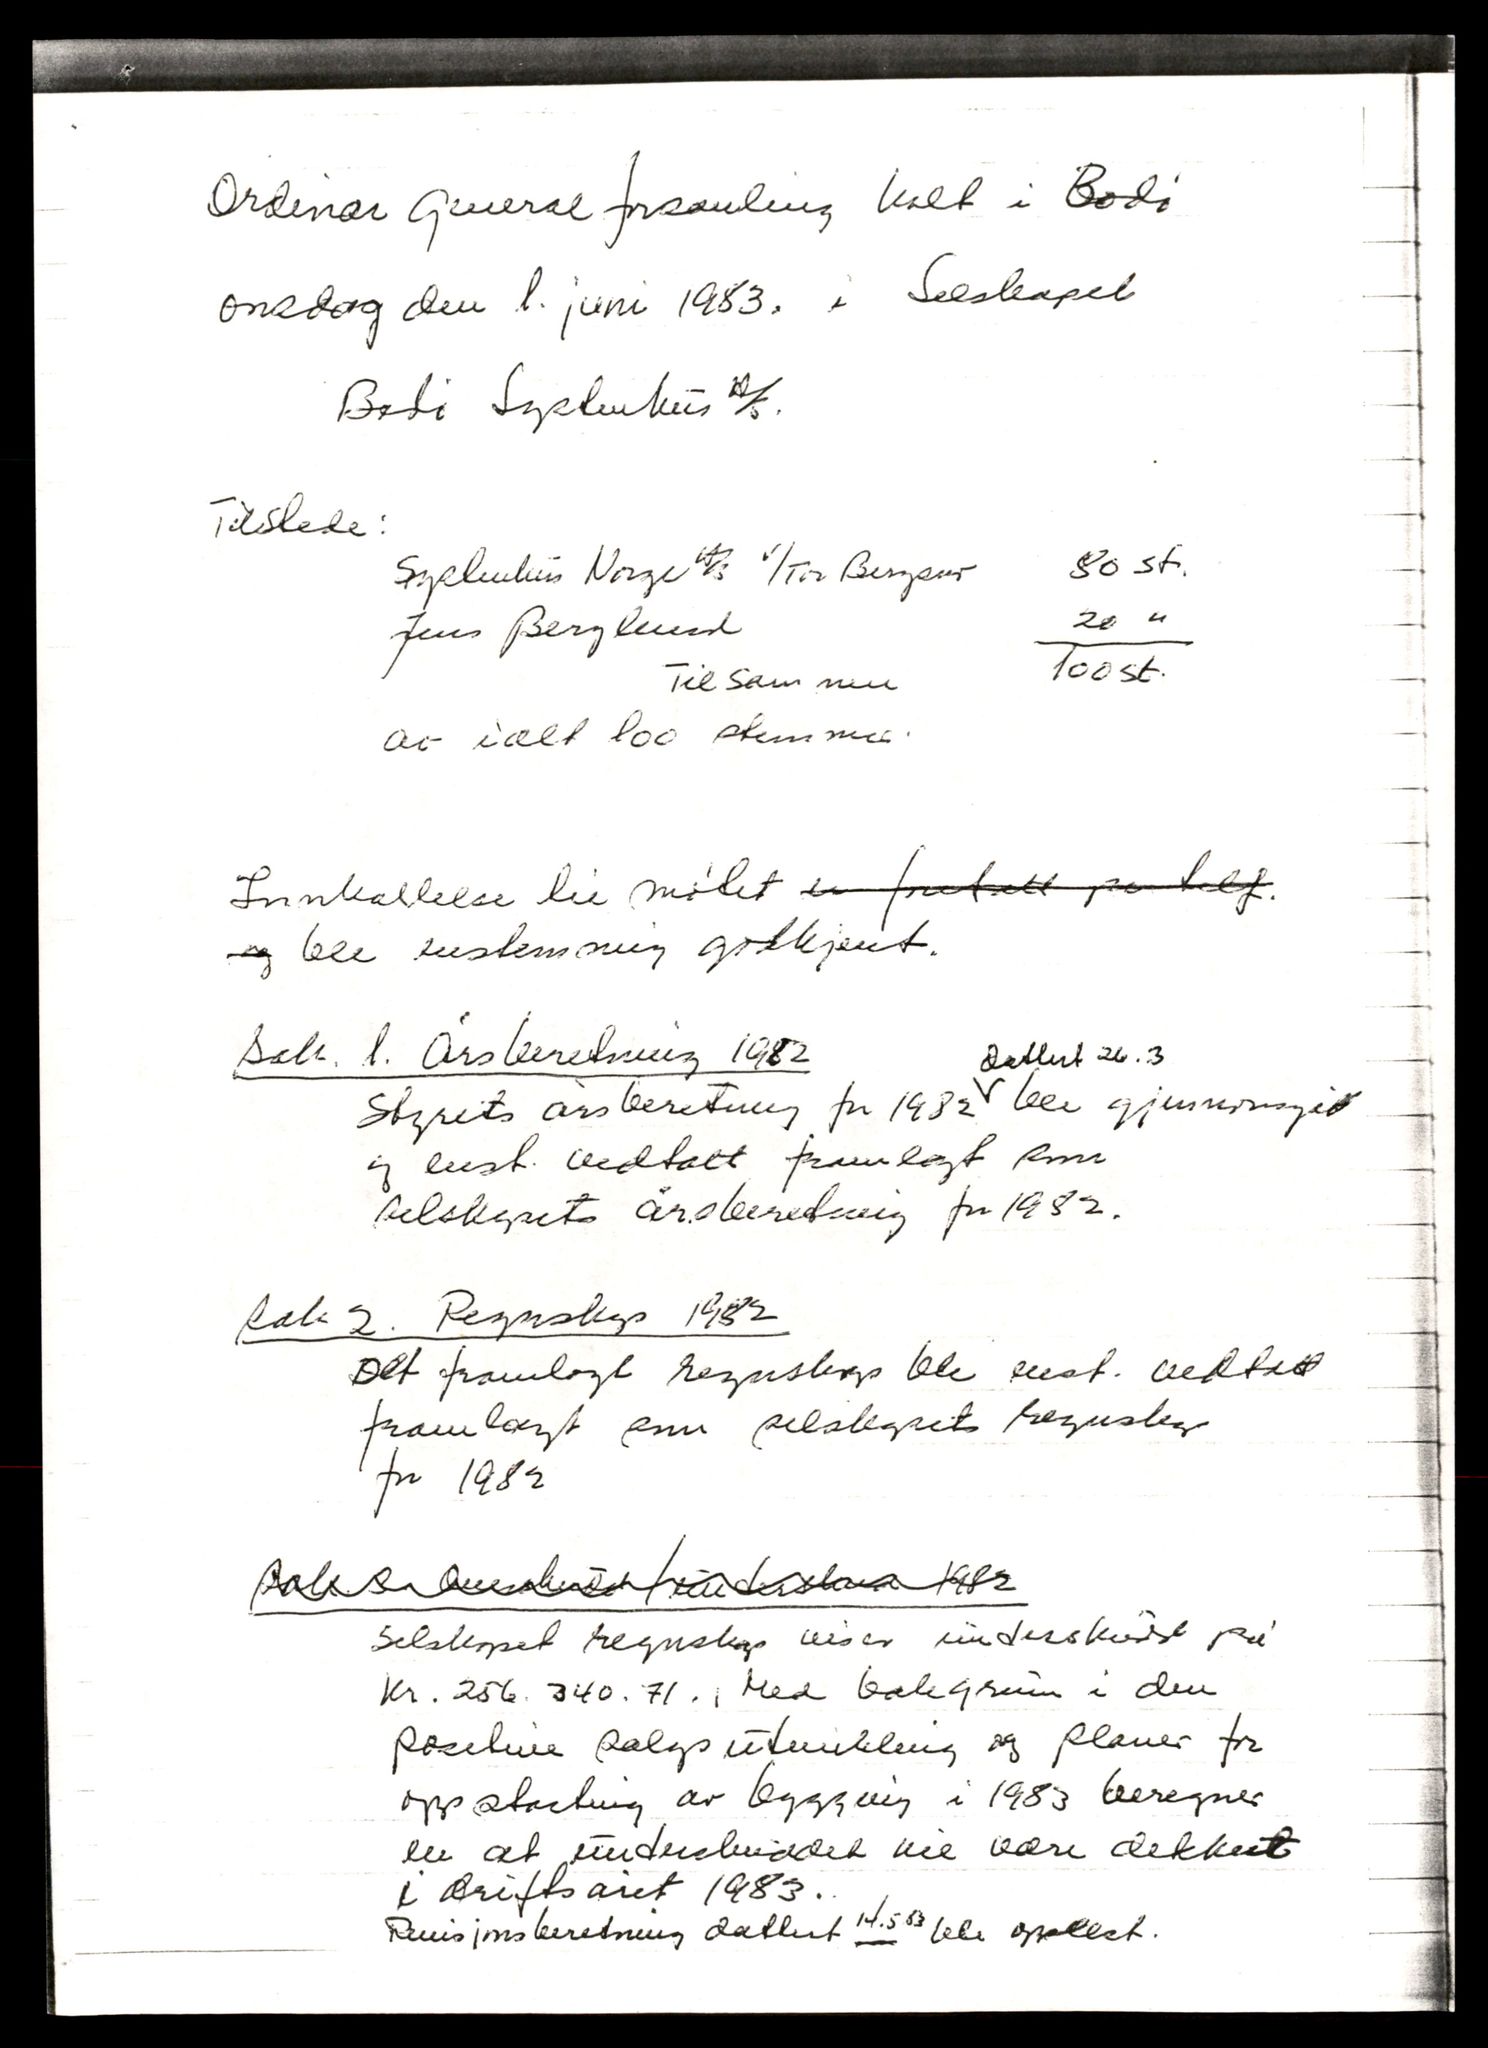 Ordinær Generalforsamling holdt i Bodø
onsdag den 1. juni 1983. i Selskapet
Bodø Systemhus A/S.
Tilstede:
Systemhus Norge A/S v/Tor Bergsmo 80 st.
Jens Berglund 20 "
Tilsammen 100 st.
av i alt 100 stemmer.
Innkallelse til møtet er foretatt pr telf.
og ble enstemmig godkjent.
Sak. 1. Årsberetning 1982
datert 26.3
Styrets årsberetning for 1982 ble gjennomgått
og enst. vedtatt framlagt som
selskapets årsberetning for 1982.
Sak 2. Regnskap 1982
Det framlagt regnskap ble enst. vedtatt
framlagt som selskapets regnskap
for 1982
Sak 3. 1982
Selskapet regnskap viser underskudd på
Kr. 256.340.71., Med bakgrunn i den
positive salgsutvikling og planer for
oppstarting av bygging i 1983 beregner
en at underskuddet vil være dekket
i driftsåret 1983.
Revisjonsberetning datert 14.5 83 ble opplest.